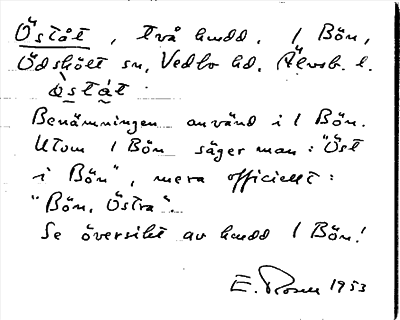 Öståt, två hmdd. i Bön,
Ödskölt sn, Vedbo hd, Älvsb. l.
östát
Benämningen använd i i Bön.
Utom i Bön säger man: "Öst
i Bön", mera officiellt:
"Bön, Östra".
Se översikt av hmdd i Bön!
E. Rosen 1953